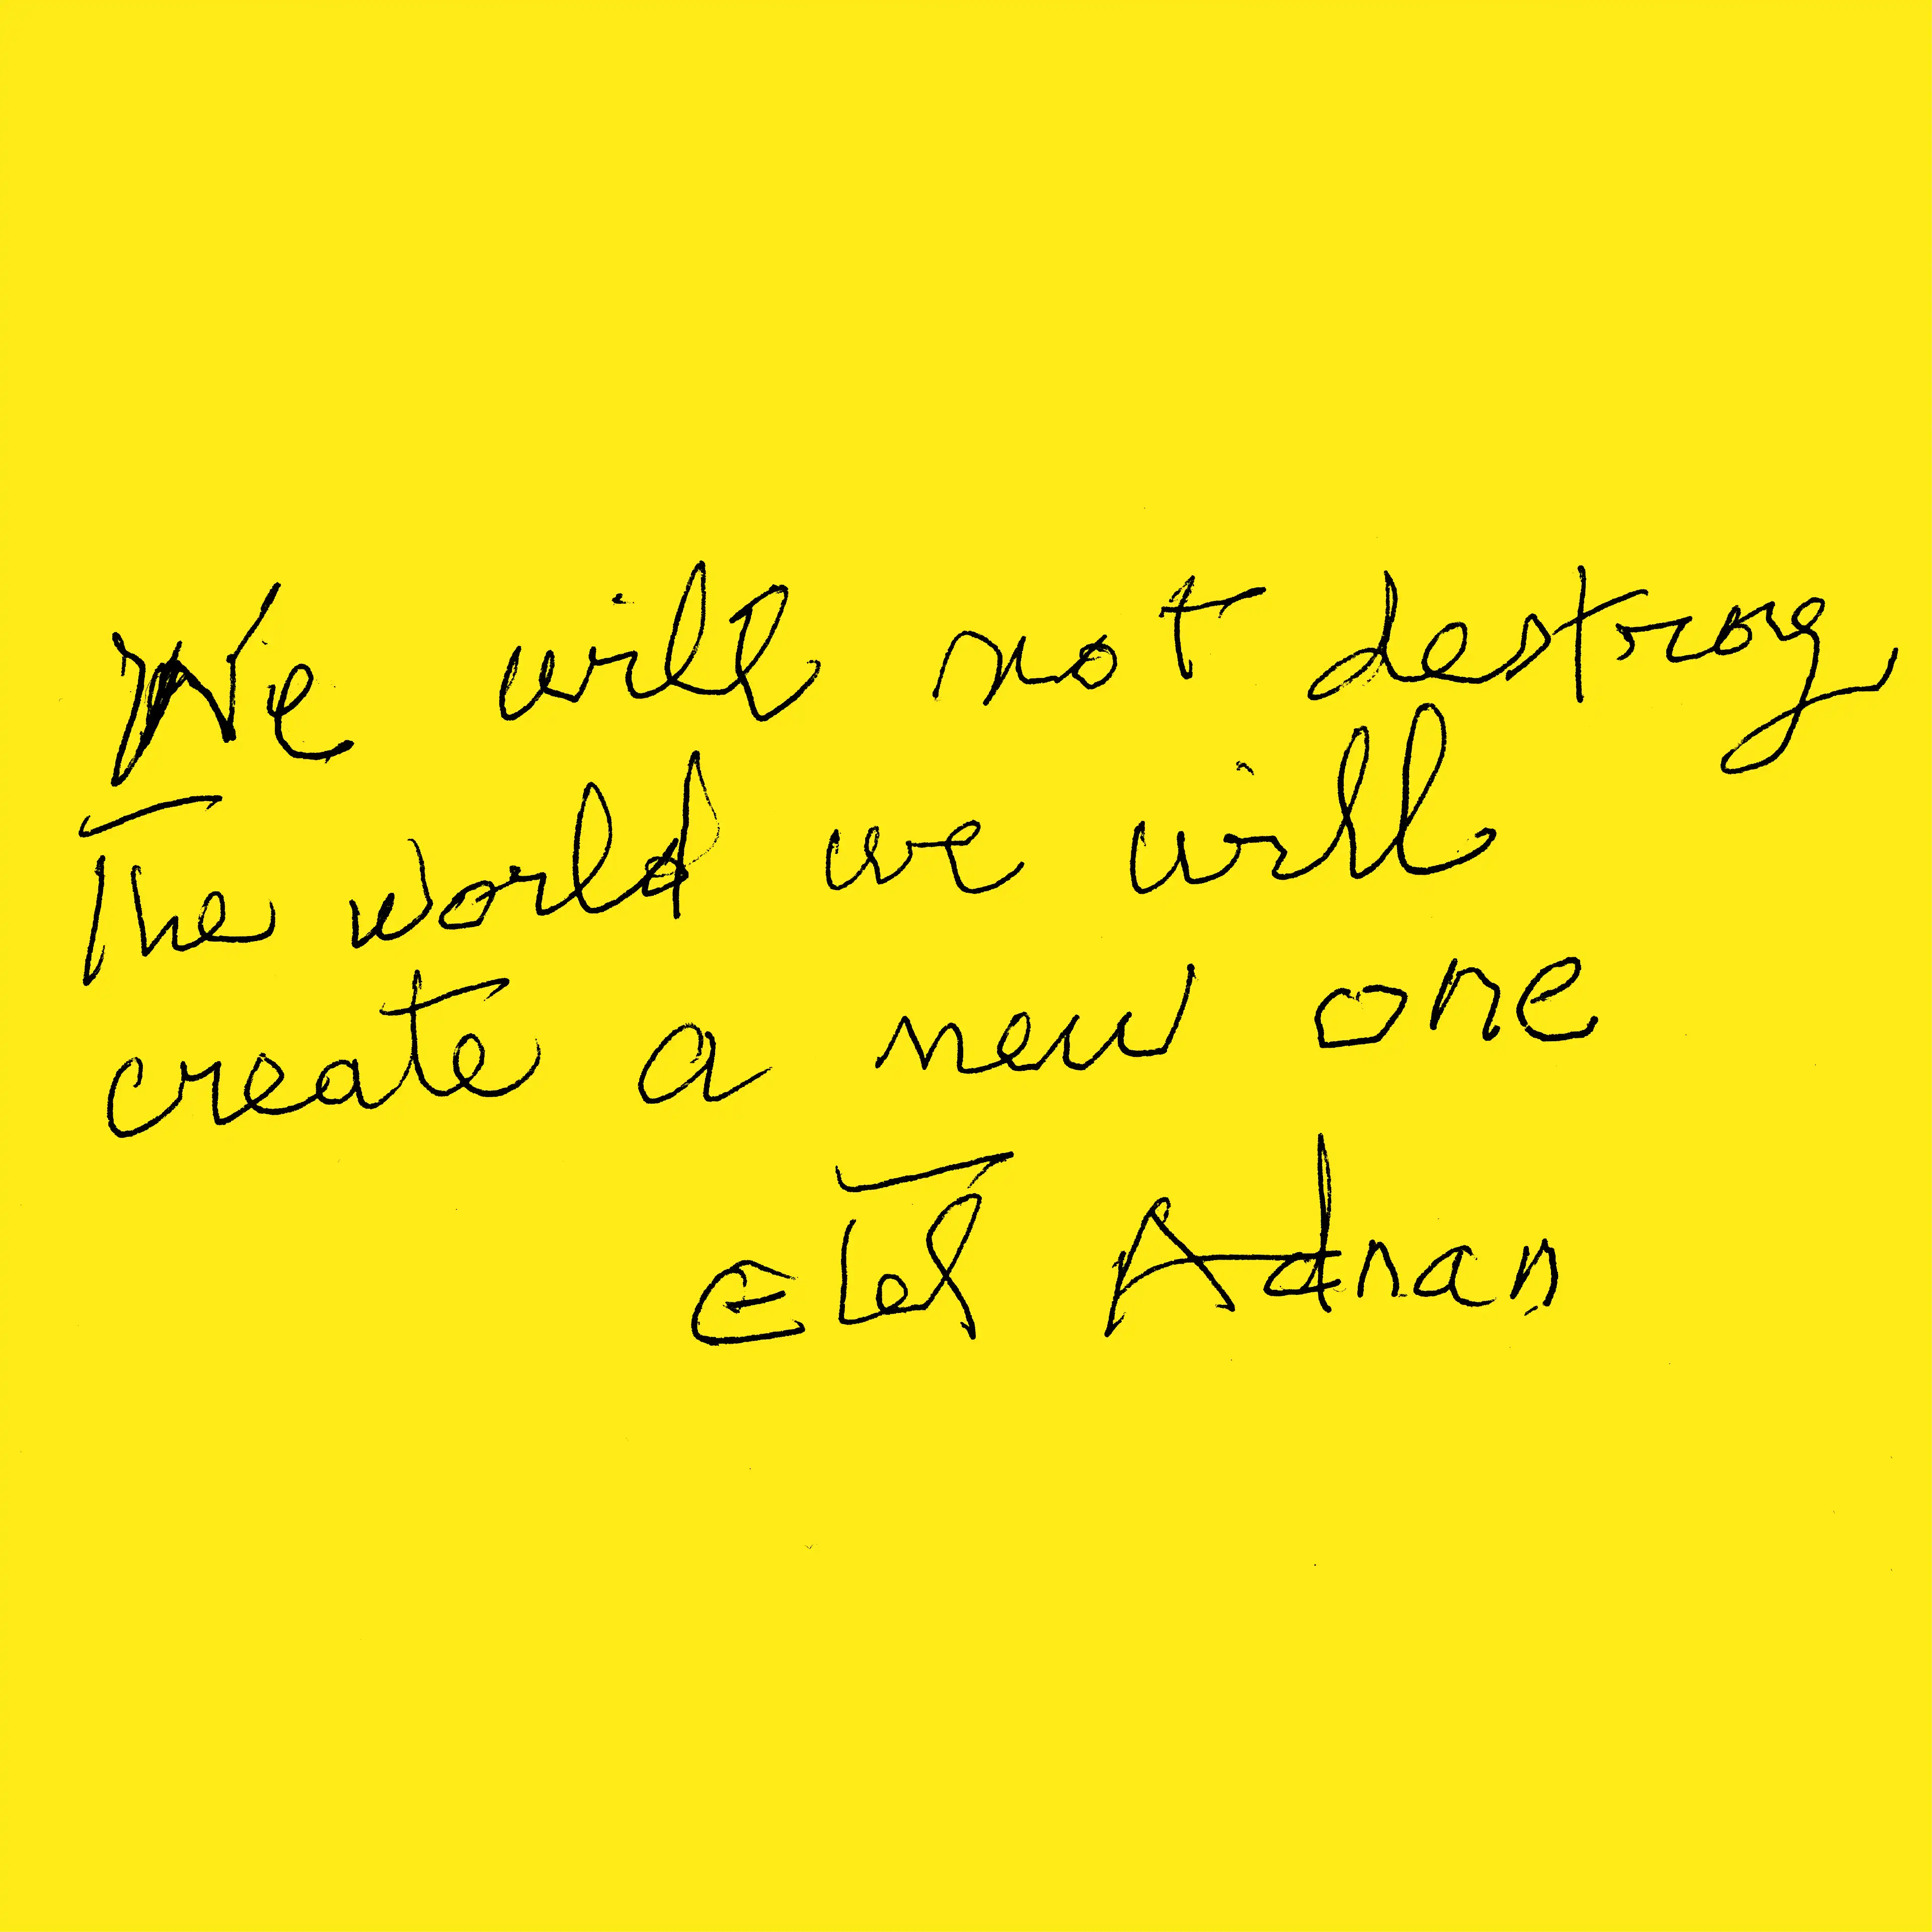 We will not destroy
The world we will
create a new one
Etel Adnan